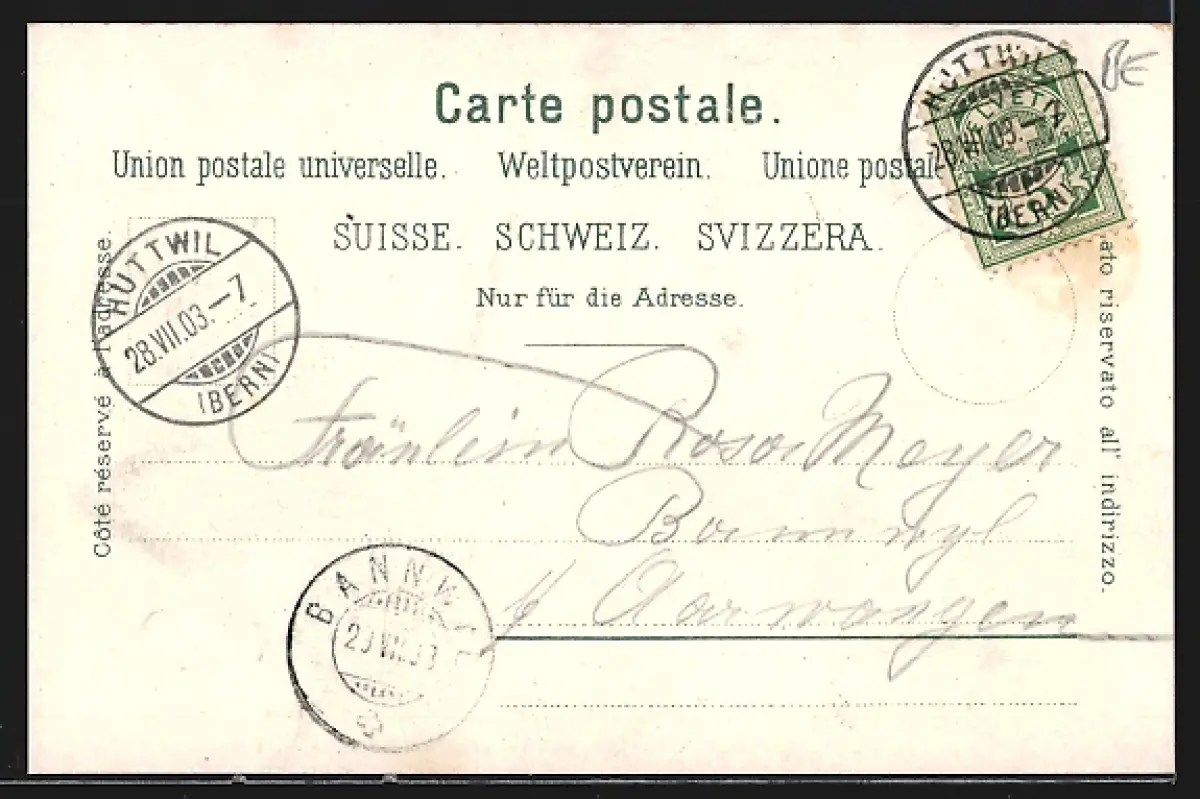 BE
Carte postale.
Union postale universelle. Weltpostverein. Unione postal
SUISSE. SCHWEIZ. SVIZZERA.
Nur für die Adresse.
Côté réservé à l'adresse.
ato riservato all' indirizzo.
HUTTWIL
28.VII.03.–
(BERN)
HELVETIA
HUTTWIL
28.VII.03.–7
(BERN)
Fräulein Rosa Meyer
Bannwyl
b/ Aarwangen
BANNWIL
VII.03